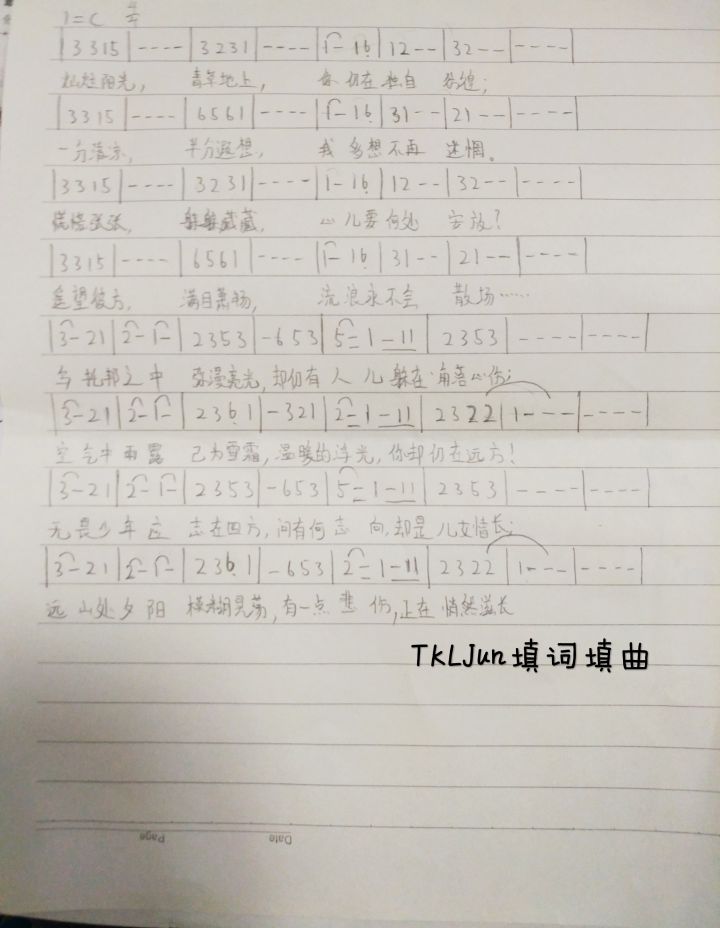 1=C 4/4
|3315|----|3231|----|1-16|12--|32--|----|
灿烂阳光， 青草地上， 你仍在独自 彷徨；
|3315|----|6561|----|1-16|31--|21--|----|
一分清凉， 半分遐想， 我多想不再 迷惘。
|3315|----|3231|----|1-16|12--|32--|----|
慌慌张张， 躲躲藏藏， 心儿要何处 安放？
|3315|----|6561|----|1-16|31--|21--|----|
遥望彼方， 满目萧肠， 流浪永不会 散场……
|3-21|2-1-|2353|-653|5-1-11|2353|----|----|
乌托邦之中 弥漫亮光，却仍有人儿躲在角落心伤；
|3-21|2-1-|2361|-321|2-1-11|2322|1---|----|
空气中雨露 已为雪霜，温暖的浮光，你却仍在远方！
|3-21|2-1-|2353|-653|5-1-11|2353|----|----|
无畏少年应 志在四方，问有何志向，却是儿女情长；
|3-21|2-1-|2361|-653|2-1-11|2322|1---|----|
远山处夕阳 模糊晃荡，有一点悲伤，正在悄然滋长
TKLJun填词填曲
Date
Page